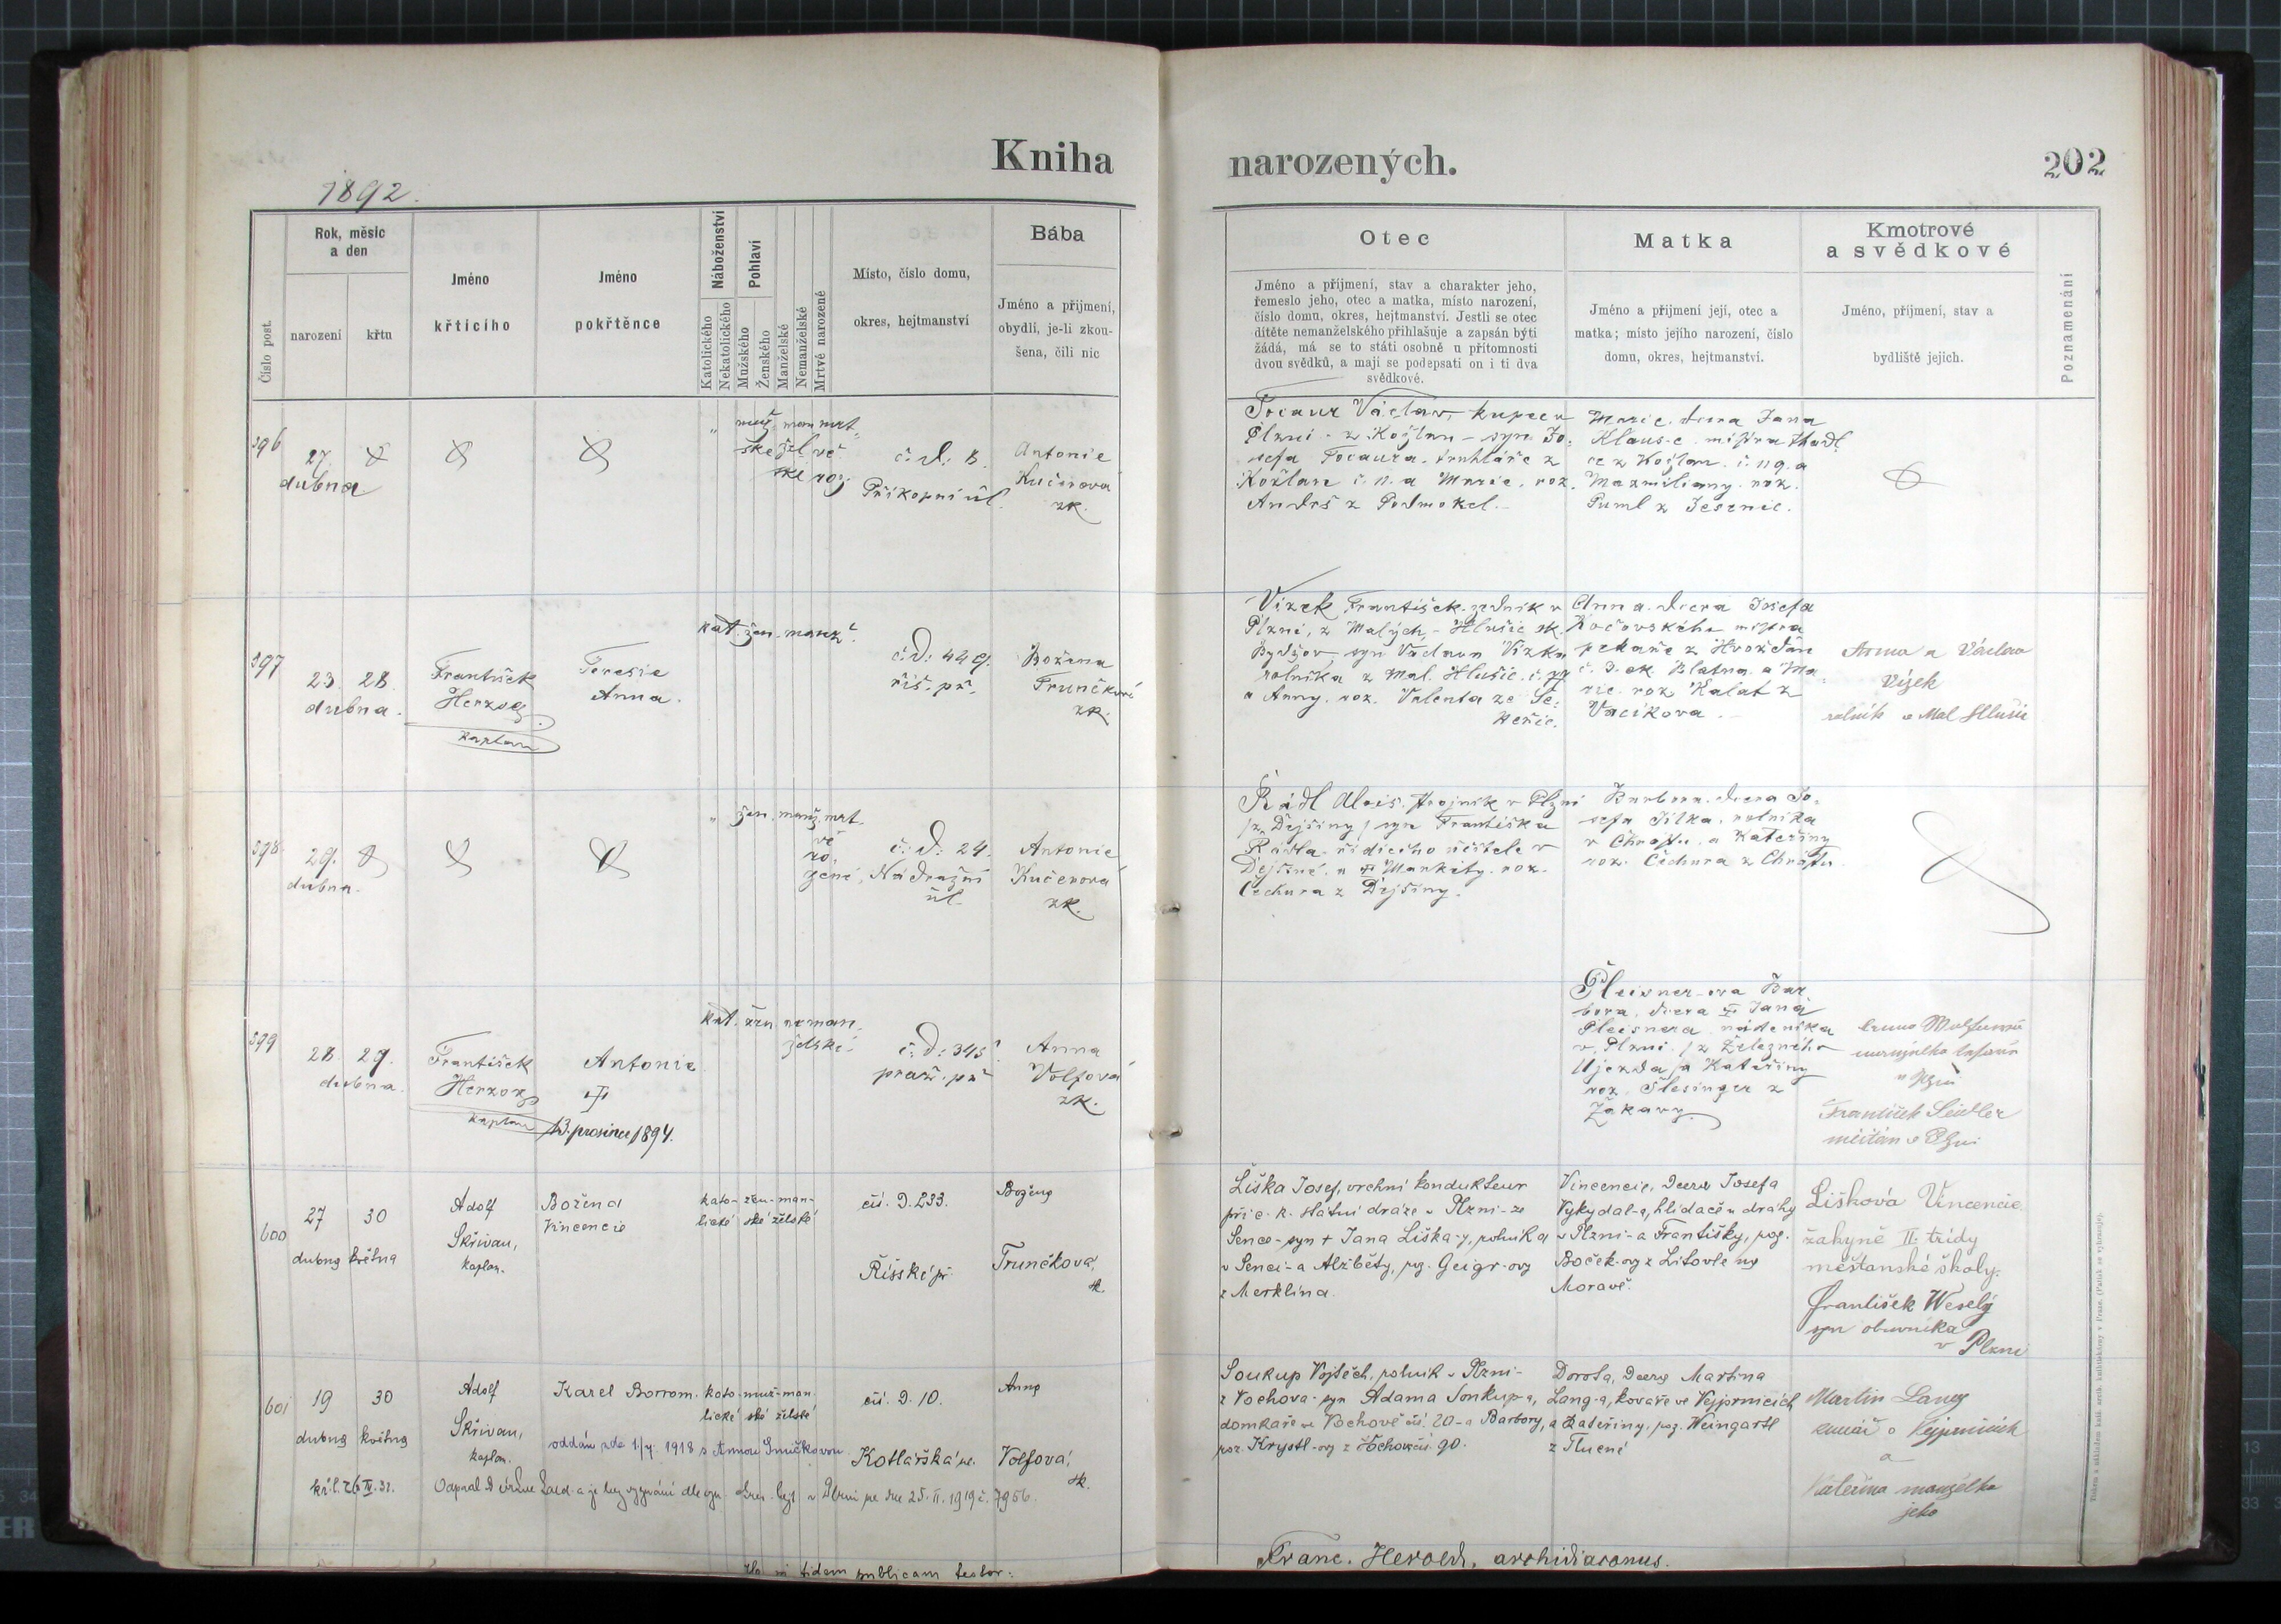 Kniha
narozených.
202
1892.
Číslo post.
Rok, měsíc
a den
narození
křtu
Jméno
křtícího
Jméno
pokřtěnce
Náboženství
Katolického
Nekatolického
Pohlaví
Mužského
Ženského
Manželské
Nemanželské
Mrtvě narozené
Místo, číslo domu,
okres, hejtmanství
Bába
Jméno a příjmení,
obydlí, je-li zkou-
šena, čili nic
Otec
Jméno a příjmení, stav a charakter jeho,
řemeslo jeho, otec a matka, místo narození,
číslo domu, okres, hejtmanství. Jestli se otec
dítěte nemanželského přihlašuje a zapsán býti
žádá, má se to státi osobně u přítomnosti
dvou svědků, a mají se podepsati on i ti dva
svědkové.
Matka
Jméno a příjmení její, otec a
matka; místo jejího narození, číslo
domu, okres, hejtmanství.
Kmotrové
a svědkové
Jméno, příjmení, stav a
bydliště jejich.
Poznamenání
596
27
dubna
č. d. 8.
Příkopní ul.
Antonie
Kučerova
zk.
Tocaur Václav, kupec v
Plzni - z Kožlan - syn Jo-
sefa Tocaura, truhláře z
Kožlan č. 11. a Marie, roz.
Andrš z Podmokel.
Marie, dcera Jana
Klaus-e, mistra
ce z Kožlan č. 119. a
Maxmiliany, roz.
Puml z Jesenic.
597
23. 28.
dubna.
František
Herzog
kaplan
Teresie
Anna.
kat. žen. manž.
č. d. 429.
říš. př.
Božena
Trunčková
zk.
Vízek František, zedník v
Plzni, z Malých - Hlušic ok.
Bydžov, syn Václava Vízka
rolníka z Mal. Hlušic
a Anny, roz. Valenta ze
Anna, dcera Josefa
Kočovského mistra
pekaře z Hvožďan
č. 3. ok. Blatna, a Ma-
rie, roz. Kalat z
Vacíkova.
Anna a Václav
Vízek
rolník v Mal Hlušic
598
29.
dubna.
žen. manž. mrt-
vě
ro-
zené,
č. d. 24.
Nádražní
ul.
Antonie
Kučerová
zk.
Rádl Alois, strojník v Plzni
/z Dejšiny/ syn Františka
Rádla řídícího učitele v
Dejšině, a Markéty, roz.
Čechura z Dejšiny.
Barbora, dcera Jo-
sefa Jílka, rolníka
v Chrástu, a Kateřiny
roz. Čechura z Chrástu.
599
28. 29.
dubna.
František
Herzog
kaplan
Antonie
13. prosince 1894.
kat. žen neman-
želské.
č. d. 345
praž. př.
Anna
Volfová
zk.
Pleisner-ova Bar
bora, dcera Jana
Pleisnera, nádeníka
v Plzni /z Železného
Újezda/ a Kateřiny
roz. Šlesinger z
Žákavy.
František Seidler
měšťan v Plzni
600
27 30
dubna května
Adolf
Skřivan,
kaplan.
Božena
Vincencie
kato- žen- man-
lické ské želské
čís. D. 233.
Říšské př.
Božena
Trunčková,
zk.
Liška Josef, vrchní kondukteur
při c. k. státní dráze v Plzni - ze
Sence - syn + Jana Liška-y, rolníka
v Senci - a Alžběty, roz. Geigr-ovy
z Merklína.
Vincencie, dcera Josefa
Vykydal-a, hlídače u dráhy
v Plzni - a Františky, roz.
Boček-ovy z Litovle na
Moravě.
Lišková Vincencie
žákyně II. třídy
měšťanské školy.
František Weselý
syn obuvníka
v Plzni
601
19 30
dubna května
Adolf
Skřivan,
kaplan.
Karel Borrom.
kato- muž- man-
lické ské želské
čís. D. 10.
Kotlářská ul.
Anna
Volfová,
zk.
oddán zde 1./7. 1918 s Annou Smíškovou
Soukup Vojtěch, rolník v Plzni -
z Vochova - syn Adama Soukup-a,
domkaře ve Vochově čís. 20 - a Barbory,
roz. Krystl-ovy z Vochova čís. 90.
Dorota, dcera Martina
Lang-a, kováře ve Vejprnicích
a Kateřiny, roz. Weingartl
z Tlucné
Martin Lang
kovář v Vejprnicích
a
Kateřina manželka
jeho
in fidem publicam testor:
Franc. Herold, archidiaconus.